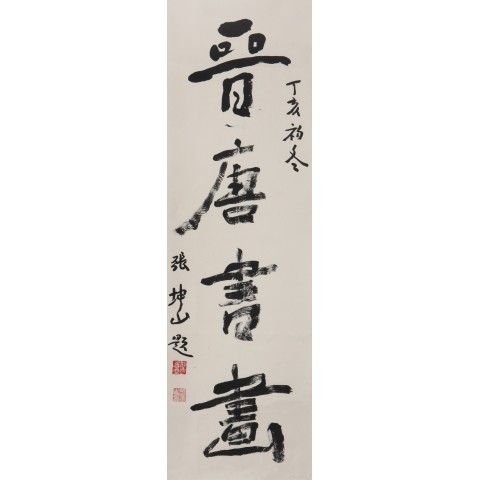 丁亥初冬
晋唐書畫
張坤山題